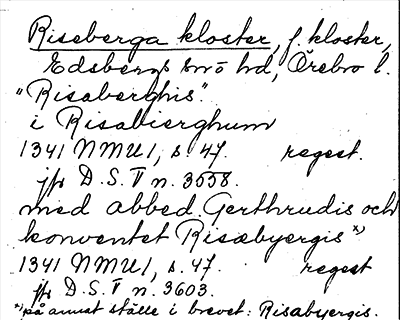 Riseberga kloster, f. kloster,
Edsbergs sn o hd, Örebro l.
"Risaberghis".
i Risabierghum
1341 NMU 1, s. 47. regest.
jfr D.S. V n. 3558.
med abbed. Gerthrudis och
konventet Risæbyergis *)
1341 NMU 1, s. 47. regest
jfr D.S. V n. 3603.
*) på annat ställe i brevet: Risabyergis.